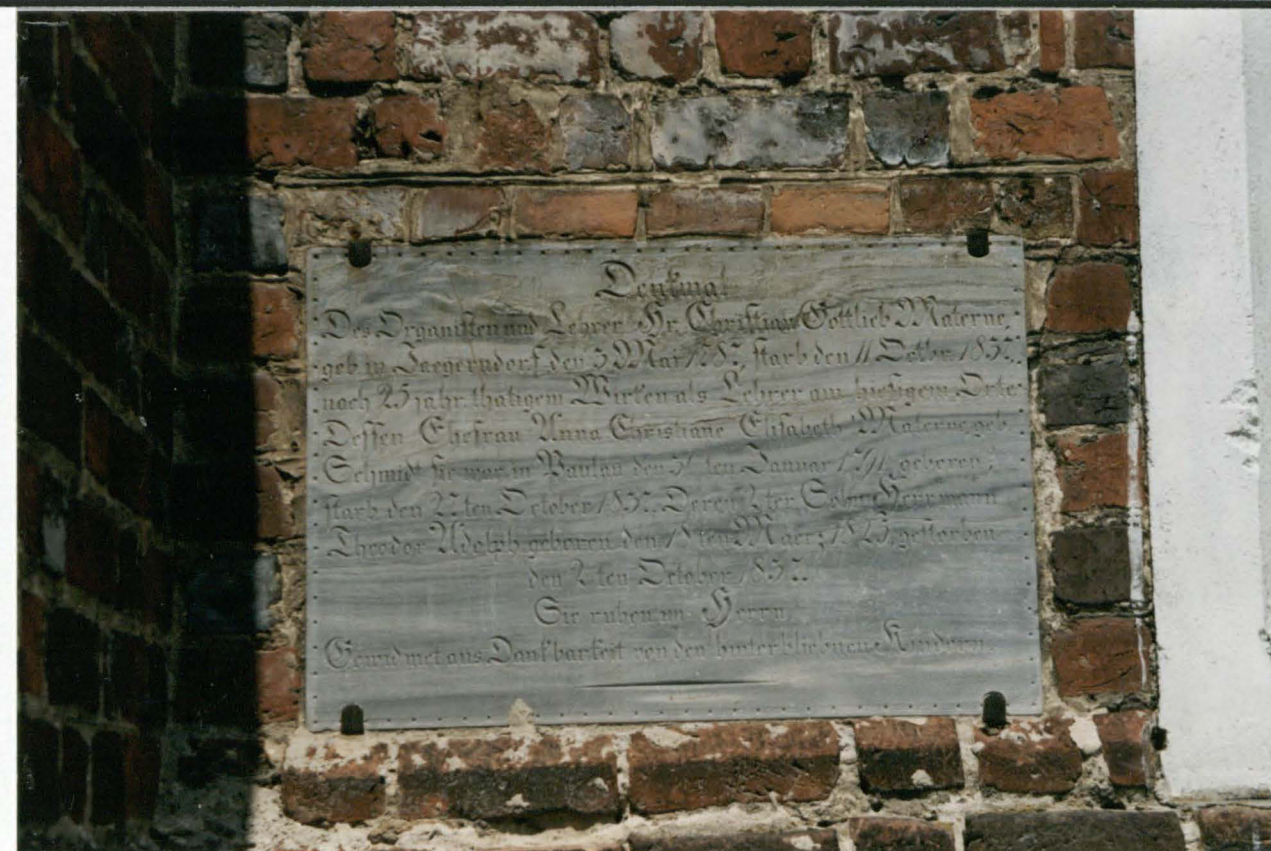 Denkmal
Des Organisten und Lehrer Hr. Christian Gottlieb Materne,
geb in Jaegerndorf den Mai starb den 11 October
nach 25 jahr. thatigem Wirken als Lehrer am hiesigem Orte
Dessen Ehefrau Anna Christiane Elisabeth Materne geb.
Schmidt sie war in den ten Januar geboren,
starb den ten October Deren ter Sohn Herrmann
Theodor Adolph geboren den ten Maerz gestorben
den ten October
Sie ruhen im Herrn
Gewidmet aus Dankbarkeit von den hinterbliebnen Kindern.